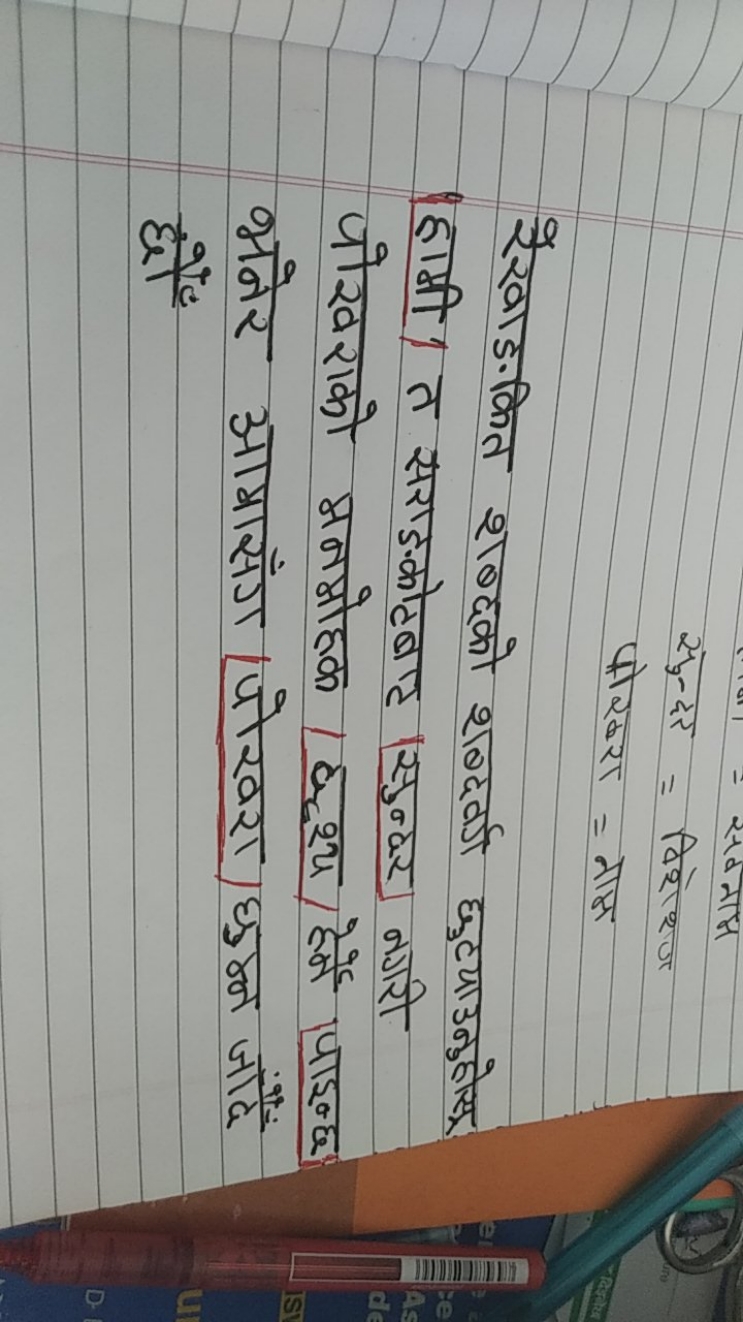 = सर्वनाम
सुन्दर = विशेषण
पोखरा = नाम
रेखाङ्कित शब्दको शब्दवर्ग छुट्याउनुहोस्
'हामी' त सराङ्कोटबाट सुन्दर नगरी
पोखराको मनमोहक दृश्य हेर्न पाइन्छ
भनेर आमासँग पोखरा घुम्न जाँदै
छौं